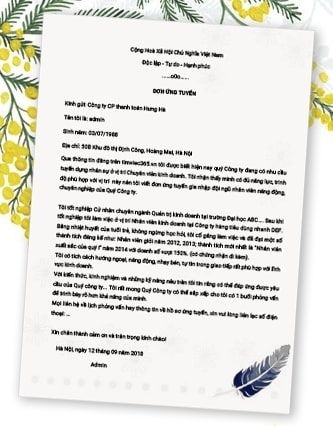 Cộng Hoà Xã Hội Chủ Nghĩa Việt Nam
Độc lập - Tự do - Hạnh phúc
......o0o......
ĐƠN ỨNG TUYỂN
Kính gửi: Công ty CP thanh toán Hưng Hà
Tên tôi là: admin
Sinh năm: 03/07/1988
Địa chỉ: 508 Khu đô thị Định Công, Hoàng Mai, Hà Nội
Qua thông tin đăng trên timviec365.vn tôi được biết hiện nay quý Công ty đang có nhu cầu
tuyển dụng nhân sự ở vị trí Chuyên viên kinh doanh. Tôi nhận thấy mình có đủ năng lực, trình
độ phù hợp với vị trí này nên tôi viết đơn ứng tuyển gia nhập đội ngũ nhân viên năng động,
chuyên nghiệp của Quý Công ty.
Tôi tốt nghiệp Cử nhân chuyên ngành Quản trị kinh doanh tại trường Đại học ABC.... Sau khi
tốt nghiệp tôi làm việc ở vị trí Nhân viên kinh doanh tại Công ty hàng tiêu dùng nhanh DEF.
Bằng nhiệt huyết của tuổi trẻ, không ngừng học hỏi, tôi cố gắng làm việc và đã đạt một số
thành tích đáng kể như: Nhân viên giỏi năm 2012, 2013; thành tích mới nhất là "Nhân viên
xuất sắc của quý I" năm 2014 với doanh số vượt 150%. (có chứng nhận đi kèm).
Tôi có tích cách hướng ngoại, năng động, nhạy bén, tự tin trong giao tiếp rất phù hợp với lĩnh
vực kinh doanh.
Với kiến thức, kinh nghiệm và những kỹ năng nêu trên tôi tin rằng có thể đáp ứng được yêu
cầu của Quý công ty... Tôi rất mong Quý Công ty có thể sắp xếp cho tôi có 1 buổi phỏng vấn
để trình bày rõ hơn khả năng của mình.
Mọi liên hệ về lịch phỏng vấn hay thông tin về hồ sơ ứng tuyển, xin vui lòng liên lạc số điện
thoại: ...
Xin chân thành cảm ơn và trân trọng kính chào!
Hà Nội, ngày 12 tháng 09 năm 2018
Admin